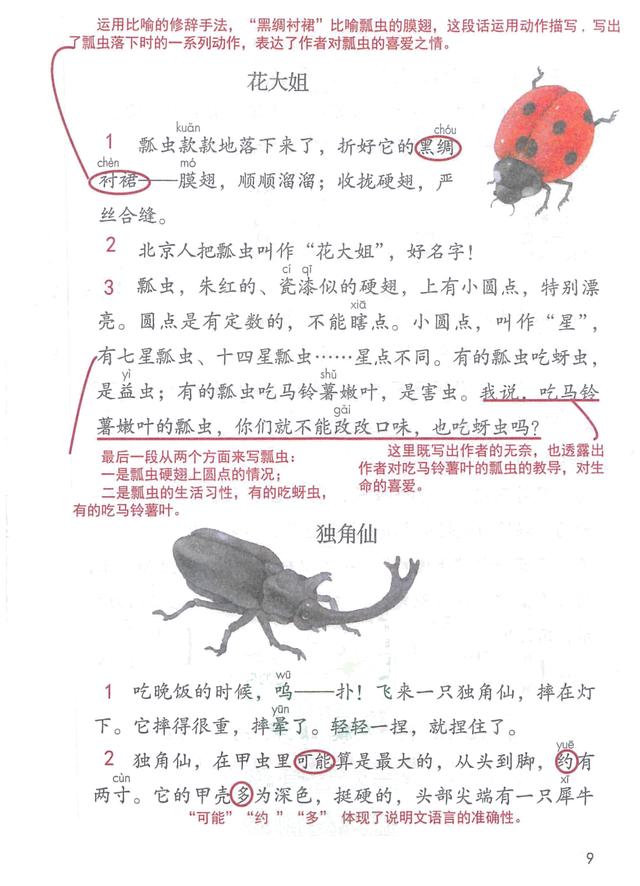 运用比喻的修辞手法，“黑绸衬裙”比喻瓢虫的膜翅，这段话运用动作描写，写出
了瓢虫落下时的一系列动作，表达了作者对瓢虫的喜爱之情。
花大姐
kuǎn chóu
1 瓢虫款款地落下来了，折好它的黑绸
chèn mó
衬裙——膜翅，顺顺溜溜；收拢硬翅，严
丝合缝。
2 北京人把瓢虫叫作“花大姐”，好名字！
cí qī
3 瓢虫，朱红的、瓷漆似的硬翅，上有小圆点，特别漂
xiā
亮。圆点是有定数的，不能瞎点。小圆点，叫作“星”，
有七星瓢虫、十四星瓢虫……星点不同。有的瓢虫吃蚜虫，
yì shǔ
是益虫；有的瓢虫吃马铃薯嫩叶，是害虫。我说，吃马铃
gǎi
薯嫩叶的瓢虫，你们就不能改改口味，也吃蚜虫吗？
最后一段从两个方面来写瓢虫：
一是瓢虫硬翅上圆点的情况；
二是瓢虫的生活习性，有的吃蚜虫，
有的吃马铃薯叶。
这里既写出作者的无奈，也透露出
作者对吃马铃薯叶的瓢虫的教导，对生
命的喜爱。
独角仙
wū
1 吃晚饭的时候，呜——扑！飞来一只独角仙，摔在灯
yūn
下。它摔得很重，摔晕了。轻轻一捏，就捏住了。
yuē
2 独角仙，在甲虫里可能算是最大的，从头到脚，约有
cùn xī
两寸。它的甲壳多为深色，挺硬的，头部尖端有一只犀牛
“可能”“约”“多” 体现了说明文语言的准确性。
9